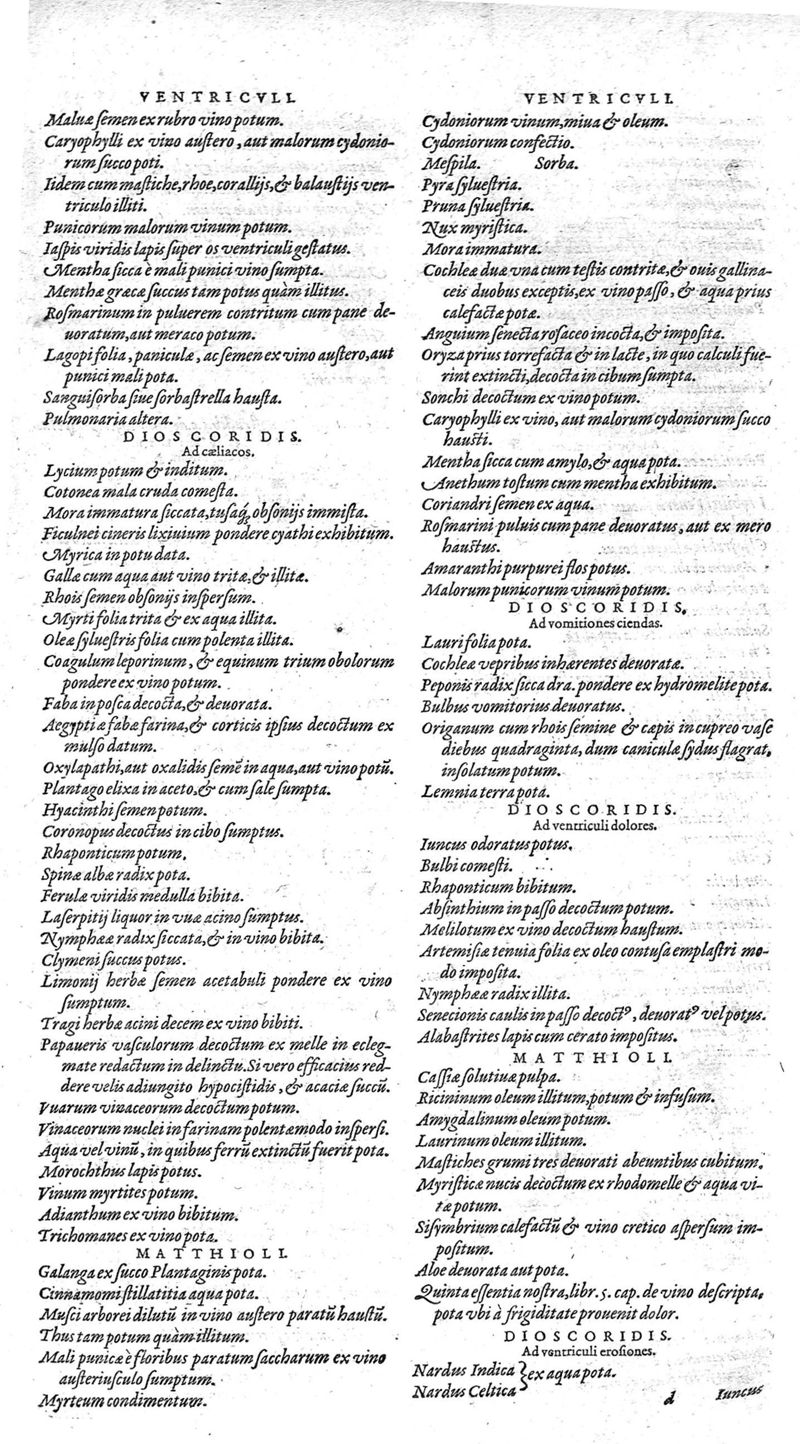 VENTRICVLI.
Maluæ ſemen ex rubro vino potum.
Caryophylli ex vino auſtero, aut malorum cydonio-
rum ſucco poti.
Iidem cum maſtiche, rhoe, corallijs, & balauſtijs ven-
triculo illiti.
Punicorum malorum vinum potum.
Iaſpis viridis lapis ſuper os ventriculi geſtatus.
Mentha ſicca è mali punici vino ſumpta.
Menthæ græcæ ſuccus tam potus quàm illitus.
Roſmarinum in puluerem contritum cum pane de-
uoratum, aut meraco potum.
Lagopi folia, paniculæ, ac ſemen ex vino auſtero, aut
punici mali pota.
Sanguiſorba ſiue ſorbaſtrella hauſta.
Pulmonaria altera.
DIOSCORIDIS.
Ad cæliacos.
Lycium potum & inditum.
Cotonea mala cruda comeſta.
Mora immatura ſiccata, tuſaq; obſonijs immiſta.
Ficulnei cineris lixiuium pondere cyathi exhibitum.
Myrica in potu data.
Gallæ cum aqua aut vino tritæ, & illitæ.
Rhois ſemen obſonijs inſperſum.
Myrti folia trita & ex aqua illita.
Oleæ ſylueſtris folia cum polenta illita.
Coagulum leporinum, & equinum trium obolorum
pondere ex vino potum.
Faba in poſca decocta, & deuorata.
Aegyptiæ fabæ farina, & corticis ipſius decoctum ex
mulſo datum.
Oxylapathi, aut oxalidis ſemē in aqua, aut vino potū.
Plantago elixa in aceto, & cum ſale ſumpta.
Hyacinthi ſemen potum.
Coronopus decoctus in cibo ſumptus.
Rhaponticum potum.
Spinæ albæ radix pota.
Ferulæ viridis medulla bibita.
Laſerpitij liquor in vuæ acino ſumptus.
Nymphææ radix ſiccata, & in vino bibita.
Clymeni ſuccus potus.
Limonij herbæ ſemen acetabuli pondere ex vino
ſumptum.
Tragi herbæ acini decem ex vino bibiti.
Papaueris vaſculorum decoctum ex melle in ecleg-
mate redactum in delinctu. Si vero efficacius red-
dere velis adiungito hypociſtidis, & acaciæ ſuccū.
Vuarum vinaceorum decoctum potum.
Vinaceorum nuclei in farinam polentæ modo inſperſi.
Aqua vel vinū, in quibus ferrū extinctū fuerit pota.
Morochthus lapis potus.
Vinum myrtites potum.
Adianthum ex vino bibitum.
Trichomanes ex vino pota.
MATTHIOLI.
Galanga ex ſucco Plantaginis pota.
Cinnamomi ſtillatitia aqua pota.
Muſci arborei dilutū in vino auſtero paratū hauſtū.
Thus tam potum quàm illitum.
Mali punicæ è floribus paratum ſaccharum ex vino
auſteriuſculo ſumptum.
Myrteum condimentum.
VENTRICVLI.
Cydoniorum vinum, miua & oleum.
Cydoniorum confectio.
Meſpila. Sorba.
Pyra ſylueſtria.
Pruna ſylueſtria.
Nux myriſtica.
Mora immatura.
Cochleæ duæ vna cum teſtis contritæ, & ouis gallina-
ceis duobus exceptis, ex vino paſſo, & aqua prius
calefacta potæ.
Anguium ſenecta roſaceo incocta, & impoſita.
Oryza prius torrefacta & in lacte, in quo calculi fue-
rint extincti, decocta in cibum ſumpta.
Sonchi decoctum ex vino potum.
Caryophylli ex vino, aut malorum cydoniorum ſucco
hauſti.
Mentha ſicca cum amylo, & aqua pota.
Anethum toſtum cum mentha exhibitum.
Coriandri ſemen ex aqua.
Roſmarini puluis cum pane deuoratus, aut ex mero
hauſtus.
Amaranthi purpurei flos potus.
Malorum punicorum vinum potum.
DIOSCORIDIS.
Ad vomitiones ciendas.
Lauri folia pota.
Cochleæ vepribus inhærentes deuoratæ.
Peponis radix ſicca dra. pondere ex hydromelite pota.
Bulbus vomitorius deuoratus.
Origanum cum rhois ſemine & cæpis in cupreo vaſe
diebus quadraginta, dum caniculæ ſydus flagrat,
inſolatum potum.
Lemnia terra pota.
DIOSCORIDIS.
Ad ventriculi dolores.
Iuncus odoratus potus.
Bulbi comeſti.
Rhaponticum bibitum.
Abſinthium in paſſo decoctum potum.
Melilotum ex vino decoctum hauſtum.
Artemiſiæ tenuia folia ex oleo contuſa emplaſtri mo-
do impoſita.
Nymphææ radix illita.
Senecionis caulis in paſſo decoctꝰ, deuoratꝰ vel potus.
Alabaſtrites lapis cum cerato impoſitus.
MATTHIOLI.
Caſſiæ ſolutiuæ pulpa.
Ricininum oleum illitum, potum & infuſum.
Amygdalinum oleum potum.
Laurinum oleum illitum.
Maſtiches grumi tres deuorati abeuntibus cubitum.
Myriſticæ nucis decoctum ex rhodomelle & aqua vi-
tæ potum.
Siſymbrium calefactū & vino cretico aſperſum im-
poſitum.
Aloe deuorata aut pota.
Quinta eſſentia noſtra, libr. 5. cap. de vino deſcripta,
pota vbi à frigiditate prouenit dolor.
DIOSCORIDIS.
Ad ventriculi eroſiones.
Nardus Indica } ex aqua pota.
Nardus Celtica
d Iuncus